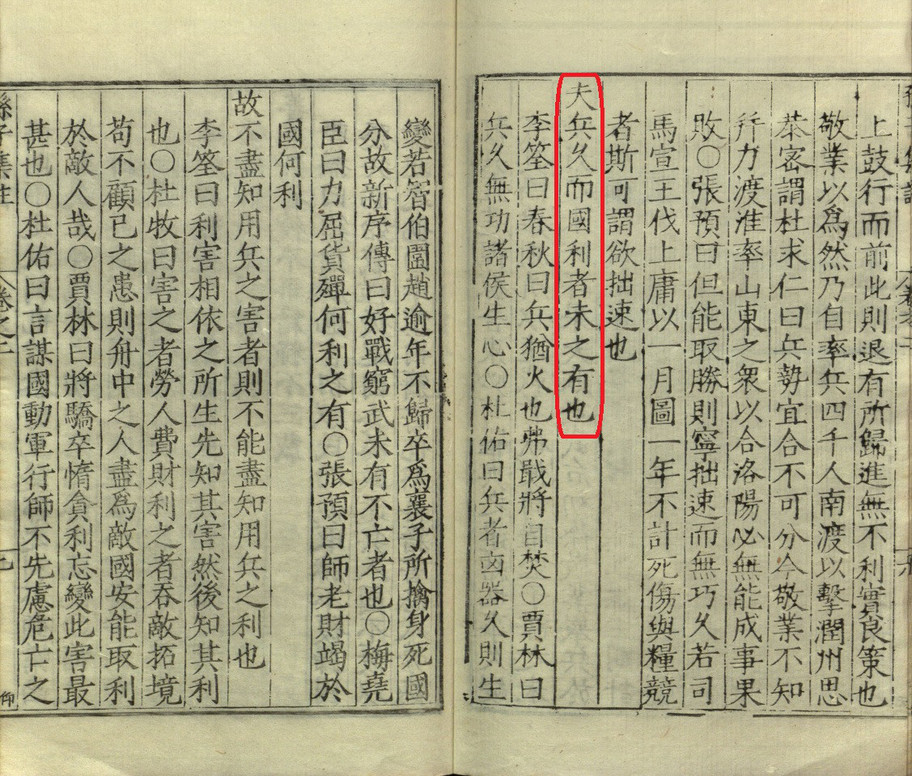 上鼓行而前此則退有所歸進無不利實良策也
敬業以爲然乃自率兵四千人南渡以擊潤州思
恭密謂杜求仁曰兵勢宜合不可分今敬業不知
幷力渡淮率山東之衆以合洛陽必無能成事果
敗○張預曰但能取勝則寧拙速而無巧久若司
馬宣王伐上庸以一月圖一年不計死傷與糧競
者斯可謂欲拙速也
夫兵久而國利者未之有也
李筌曰春秋曰兵猶火也弗戢將自焚○賈林曰
兵久無功諸侯生心○杜佑曰兵者凶器久則生
變若智伯圍趙逾年不歸卒爲襄子所擒身死國
分故新序傳曰好戰窮武未有不亡者也○梅堯
臣曰力屈貨殫何利之有○張預曰師老財竭於
國何利
故不盡知用兵之害者則不能盡知用兵之利也
李筌曰利害相依之所生先知其害然後知其利
也○杜牧曰害之者勞人費財利之者吞敵拓境
苟不顧己之患則舟中之人盡爲敵國安能取利
於敵人哉○賈林曰將驕卒惰貪利忘變此害最
甚也○杜佑曰言謀國動軍行師不先慮危亡之
孫子集註 卷之二